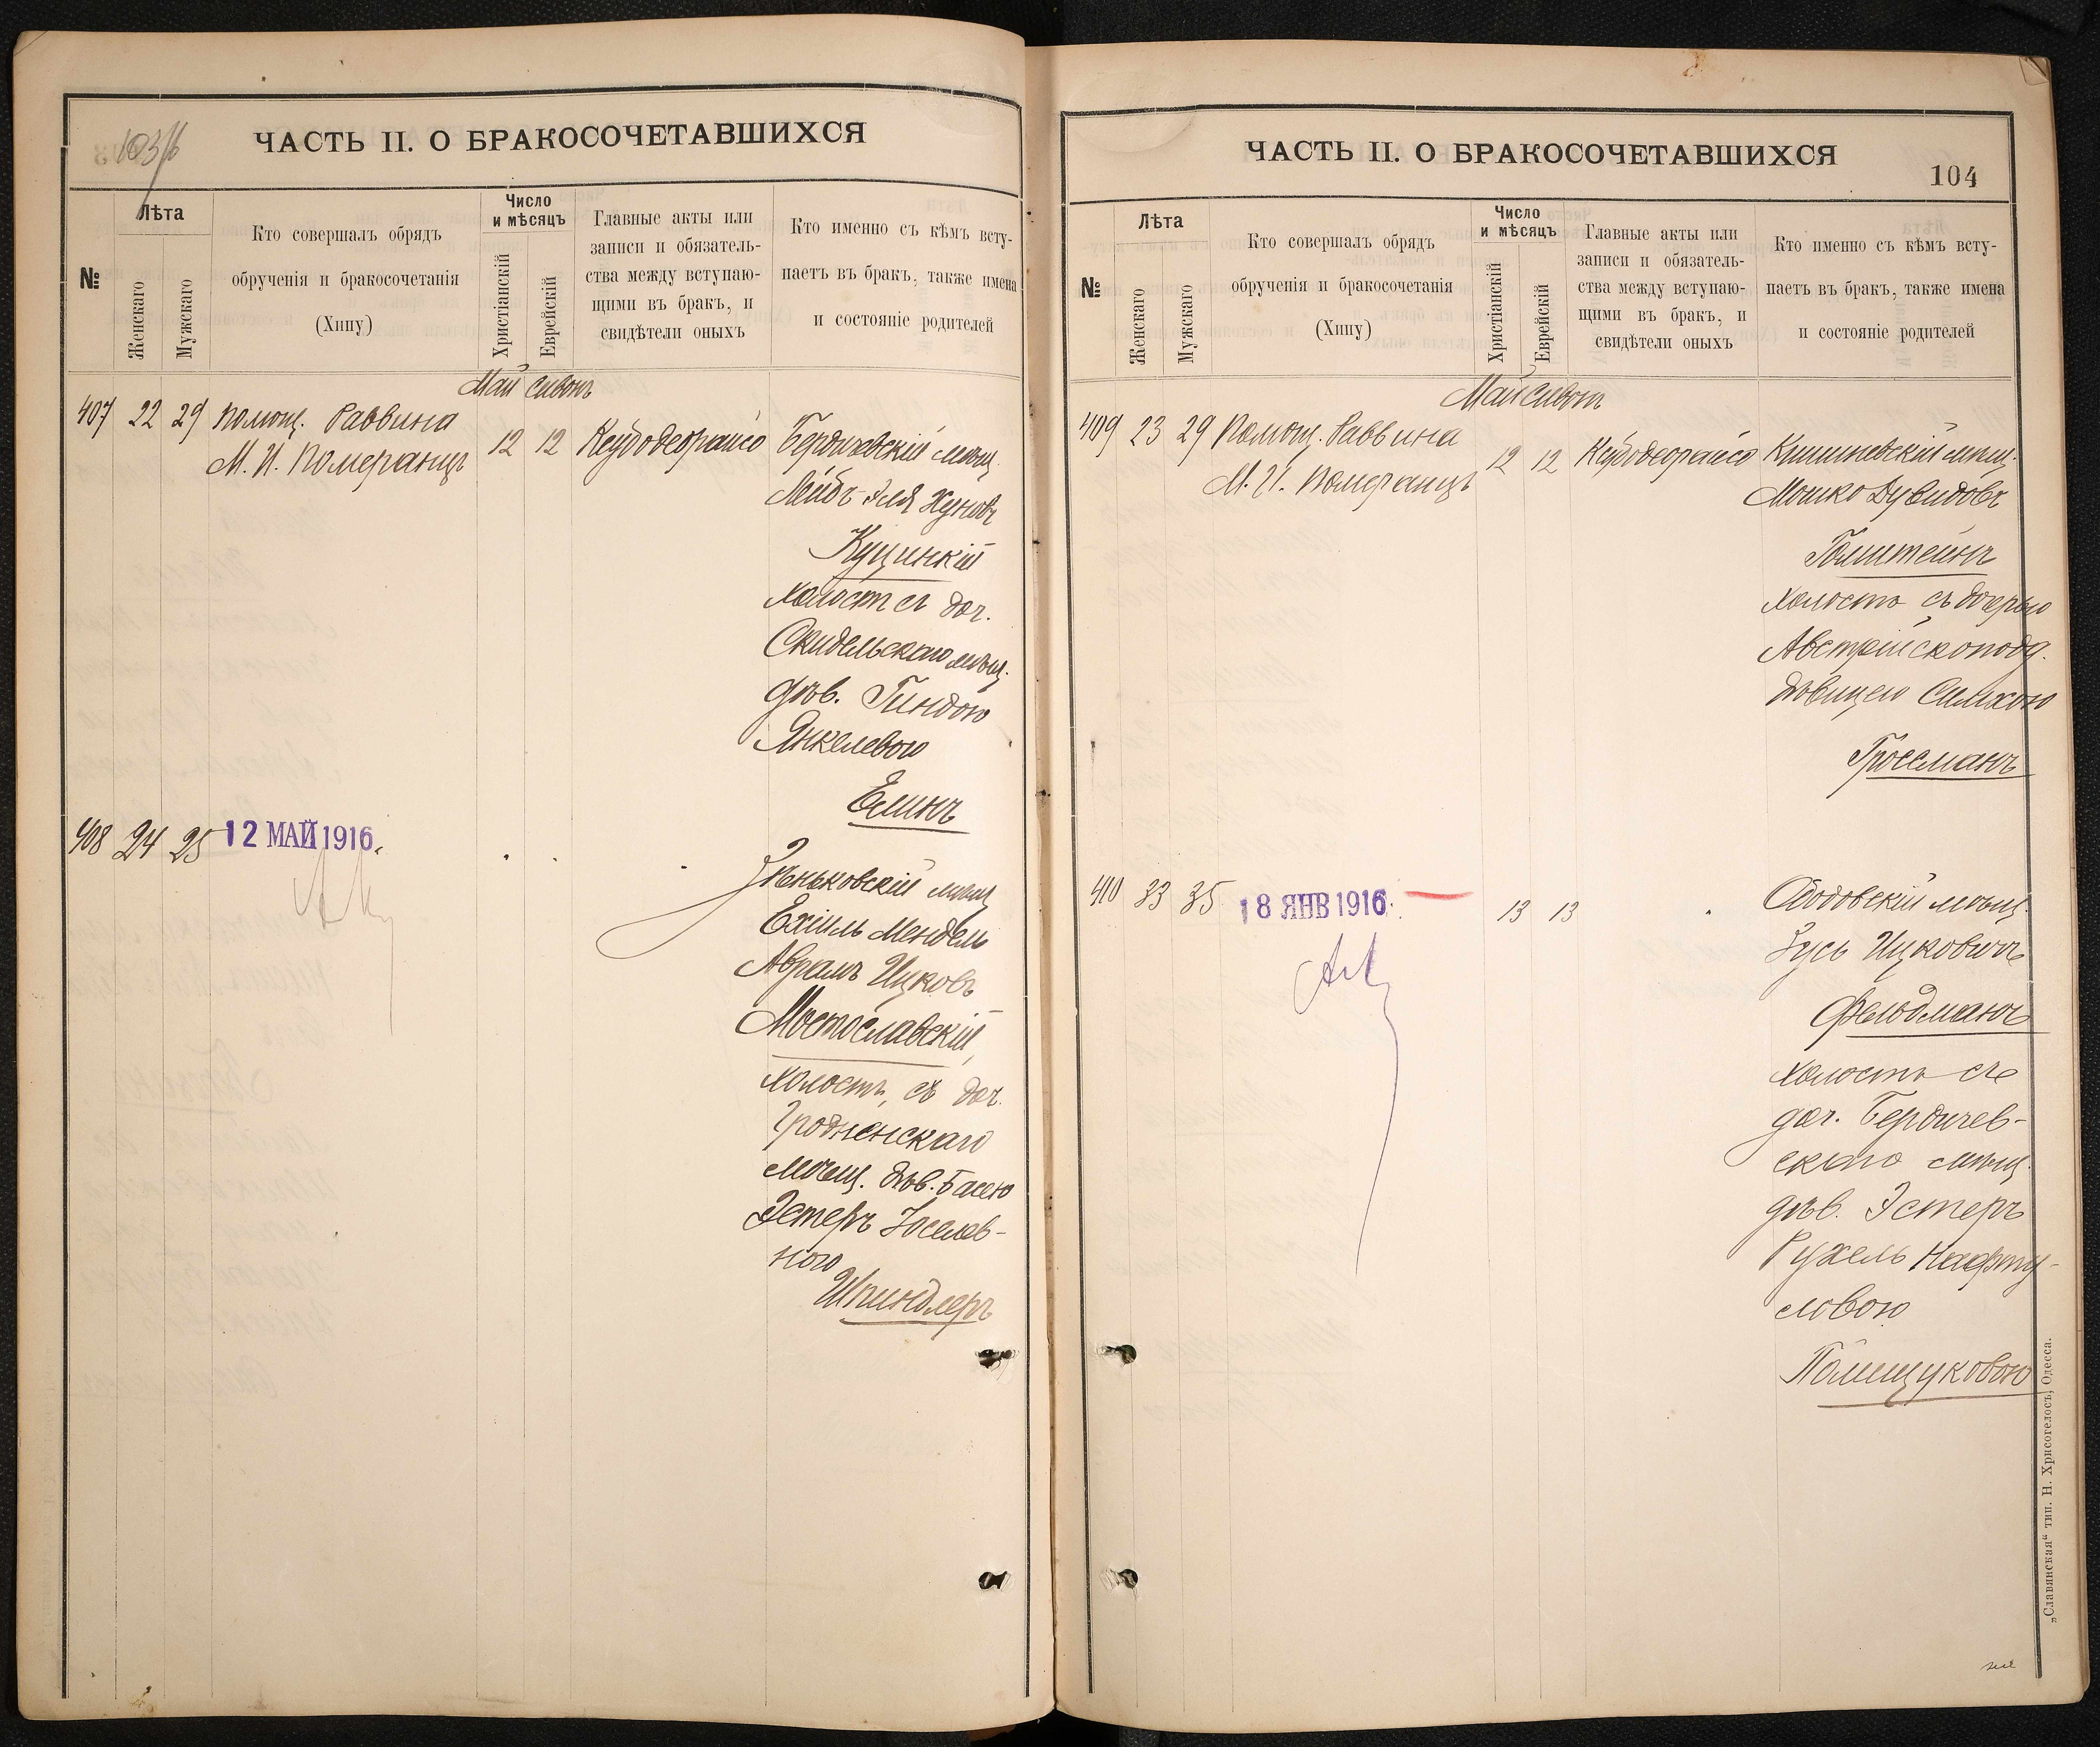 103 1/б
ЧАСТЬ II. О БРАКОСОЧЕТАВШИХСЯ
№
Лѣта
Женскаго
Мужскаго
Кто совершалъ обрядъ
обрученія и бракосочетанія
(Хипу)
Число
и мѣсяцъ
Христіанскій
Еврейскій
Главные акты или
записи и обязатель-
ства между вступаю-
щими въ бракъ, и
свидѣтели оныхъ
Кто именно съ кѣмъ всту-
паетъ въ бракъ, также имена
и состояніе родителей
Май Сивонъ
407 22 29 Помощ. Раввина
М. И. Померанцъ
12 12 Ксубодеорайсо
Бердичевскій мѣщ.
Лейбъ Эля Хуновъ
Куцинкій
холостъ съ доч.
Скидельскаго мѣщ.
дѣв. Гиндою
Янкелевою
Елинъ
408 24 25 12 МАЙ 1916
Зеньковскій мѣщ.
Ехіиль Мендель
Абрамъ Ицковъ
Мостославскій,
холостъ, съ доч.
Гродненскаго
мѣщ. дѣв. Басею
Эстеръ Іоселев-
ною
Шпиндлеръ
ЧАСТЬ II. О БРАКОСОЧЕТАВШИХСЯ
104
№
Лѣта
Женскаго
Мужскаго
Кто совершалъ обрядъ
обрученія и бракосочетанія
(Хипу)
Число
и мѣсяцъ
Христіанскій
Еврейскій
Главные акты или
записи и обязатель-
ства между вступаю-
щими въ бракъ, и
свидѣтели оныхъ
Кто именно съ кѣмъ всту-
паетъ въ бракъ, также имена
и состояніе родителей
Май Сивон
409 23 29 Помощ. Раввина
М. И. Померанцъ
12 12 Ксубодеорайсо
Кишиневскій мѣщ.
Мошко Дувидовъ
Голштейнъ
холостъ съ дочерью
Австрійскоподд.
дѣвицею Симхою
Гроссманъ
410 33 35 18 ЯНВ 1916
13 13
Ободовскій мѣщ.
Зусь Ицковичъ
Фельдманъ
холостъ съ
доч. Бердичев-
скаго мѣщ.
дѣв. Эстеръ
Рухель Нафту-
ловою
Полищуковою
„Славянская“ тип. Н. Хрисогелосъ, Одесса.